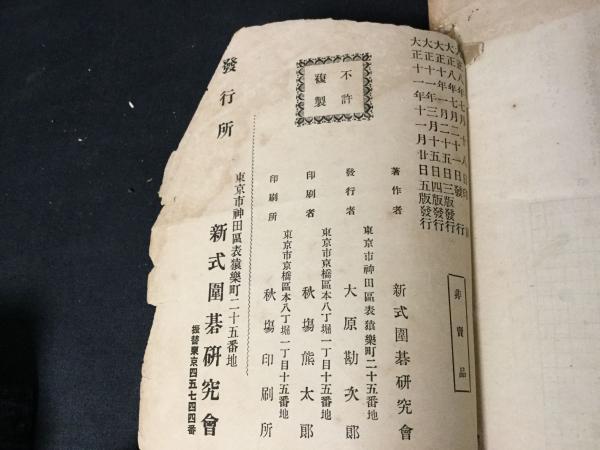 大正八年七月十八日印
大正八年七月二十一日發行
大正十年一月二十五日三版發行
大正十一年三月十五日四版發行
大正十一年十一月廿日五版發行
非賣品
不許
複製
著作者
新式圍碁硏究會
東京市神田區表猿樂町二十五番地
發行者
大原勘次郞
東京市京橋區本八丁堀一丁目十五番地
印刷者
秋塲熊太郞
東京市京橋區本八丁堀一丁目十五番地
印刷所
秋塲印刷所
發行所
東京市神田區表猿樂町二十五番地
新式圍碁硏究會
振替東京四五七四四番